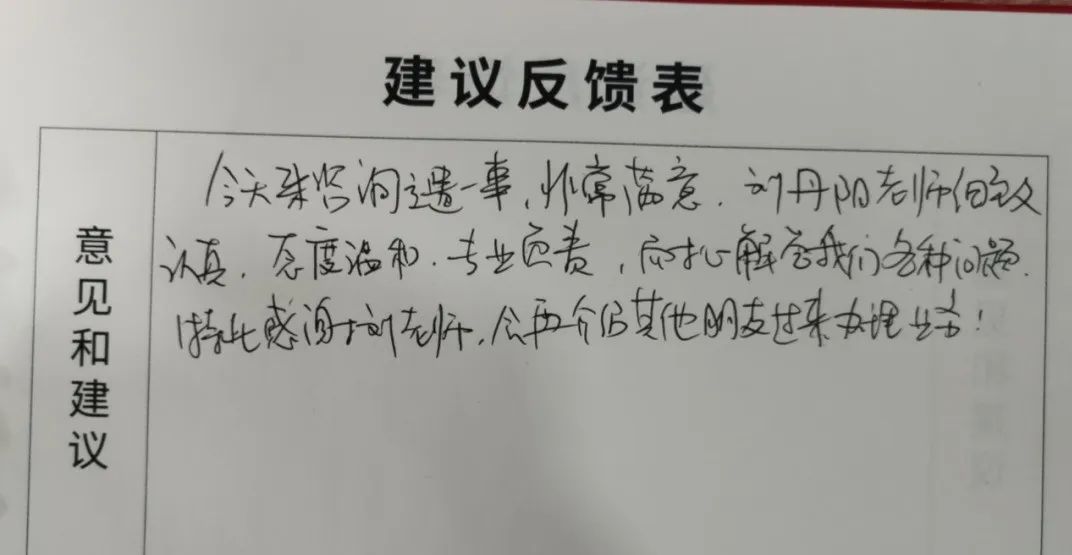 建议反馈表
意见和建议
今天来咨询遗一事,非常满意.刘丹阳老师细致
认真.态度温和.专业负责,耐心解答我们各种问题.
特此感谢刘老师,会再介绍其他朋友过来办理业务!